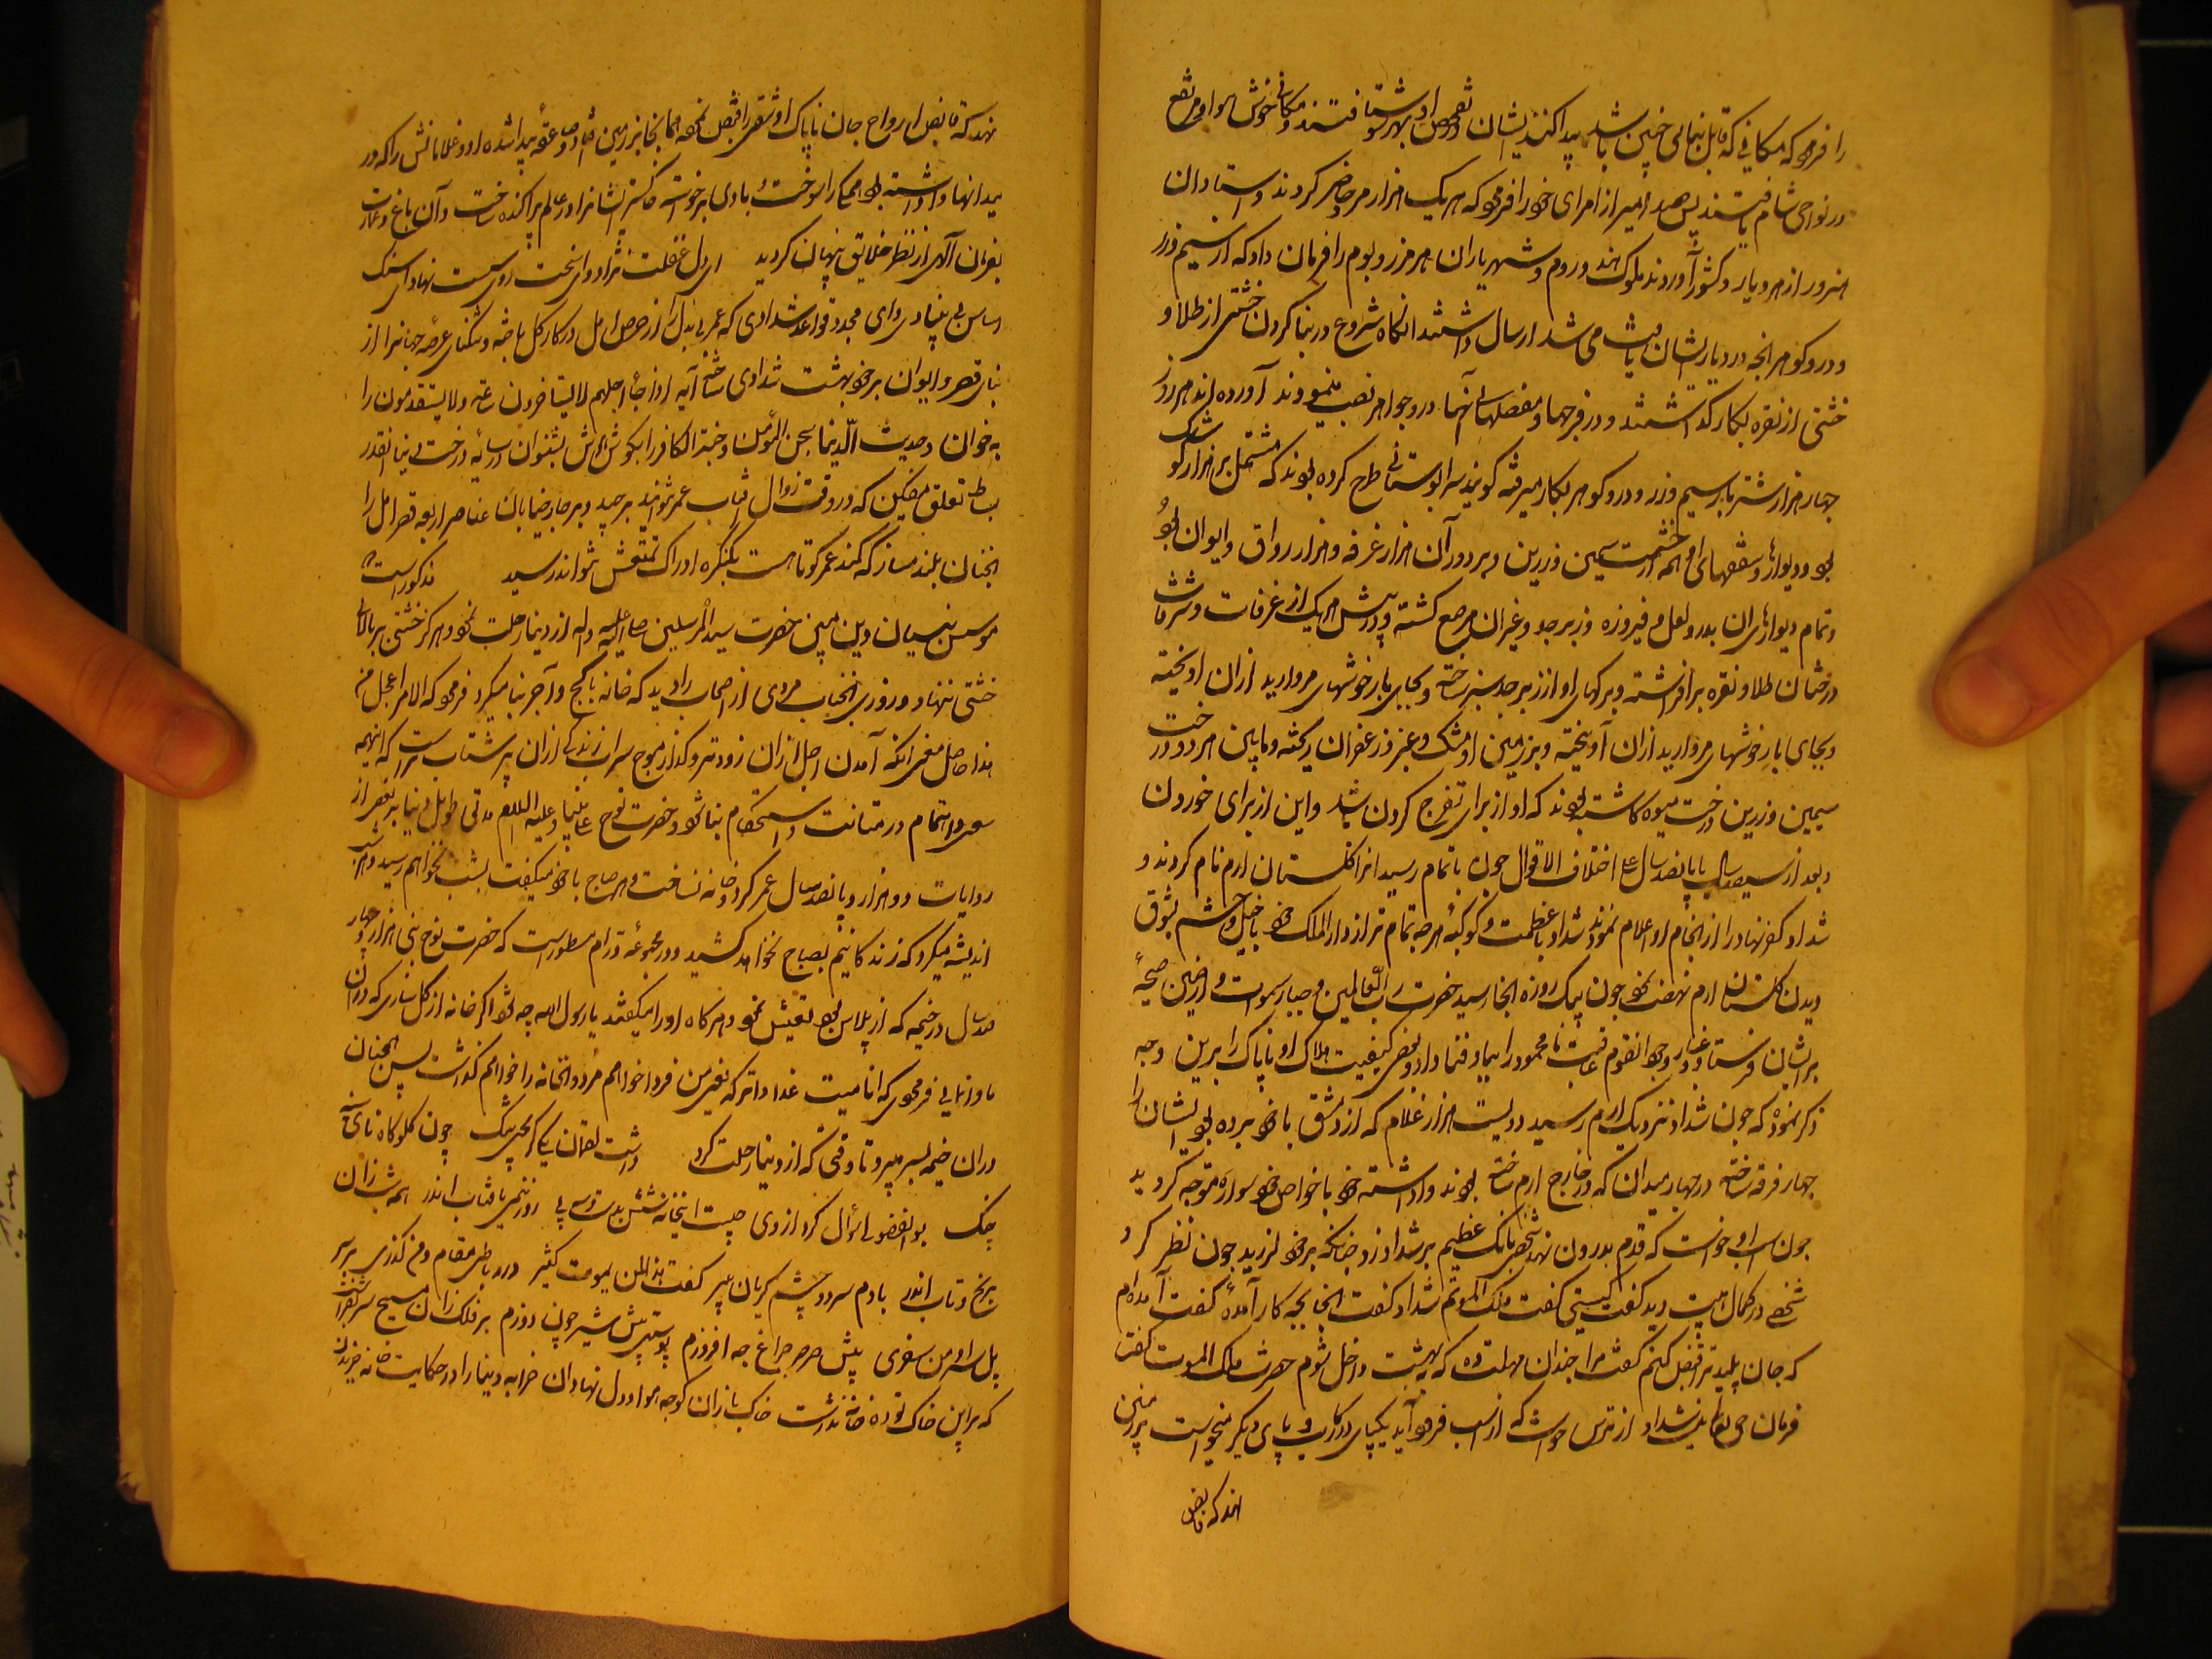 را فرمود که مکانی که قابل بنای چنین باشد پیدا کنند ایشان در تفحص او بهر سو شتافتند و مکانی خوش هوا و مرتفع
در نواحی شام یافتند پس صد امیر از امرای خود را فرمود که هر یک هزار مرد حاضر کردند و استادان
هنرور از هر دیار و کشور آوردند ملوک هند و روم و شهریاران هر مرز و بوم را فرمان داد که از سیم و زر
و در و گوهر آنچه در دیار ایشان یافت می شد ارسال داشتند آنگاه شروع در بنا کردن خشتی از طلا و
خشتی از نقره بکار گذاشتند و در فرجها و مفصلهای آنها در و جواهر نصب مینمودند آورده اند هر روز
چهار هزار شتر بار سیم و زر و در و گوهر بکار میرفته گویند سرابوستانی طرح کرده بودند که مشتمل بر هزار کوشک
بود و دیوارها و سقفهای او همه از خشت سیمین و زرین و بر دور آن هزار غرفه و هزار رواق و ایوان بود
و تمام دیوارهای آن بدر و لعل و فیروزه و زبرجد و غیر آن مرصع گشته و در پیش هر یک از غرفات و شرفات
درختان طلا و نقره برافراشته و برگهای او از زبرجد سبز ساخته و بجای بار خوشهای مروارید از ان اویخته
و بجای بار خوشهای مروارید از ان آویخته و بر زمین او مشک و عنبر و زعفران ریخته و مابین هر دو درخت
سیمین و زرین درخت میوه کاشته بودند که او از برای تفرج کردن باشد و این از برای خوردن
و بعد از سیصد سال یا پانصد سال علی اختلاف الاقوال چون باتمام رسید انرا گلستان ارم نام کردند و
شداد کفر نهاد را از انجام او اعلام نمودند شداد با عظمت و کوکبه هر چه تمام تر از دار الملک خود با خیل و حشم بشوق
دیدن گلستان ارم نهضت نمود چون بیک روزه انجا رسید حضرت رب العالمین و جبار سموات و ارضین صیحه
بر ایشان فرستاد و غبار وجود انقوم عاقبت نامحمود را بباد فنا داد و بعضی کیفیت هلاک او ناپاک را برین وجه
ذکر نموده که چون شداد نزدیک ارم رسید دویست هزار غلام که از دمشق با خود برده بود ایشان را
چهار فرقه ساخته در چهار میدان که در خارج ارم ساخته بودند واداشته خود با خواص خود سواره متوجه گردید
چون اسب او خواست که قدم بدرون نهد شخصی بانک عظیم بر شداد زد چنانکه بر خود لرزید چون نظر کرد
شخصی در کمال هیبت دید گفت کیستی گفت ملک الموتم شداد گفت اینجا بچه کار آمده گفت آمده ام
که جان پلید تو قبض کنم گفت مرا چندان مهلت ده که بهشت داخل شوم حضرت ملک الموت گفت
فرمان حق تعالی نیست شداد از ترس خواست که از اسب فرود آید یکپای در رکاب و پای دیگر میخواست بر زمین
نهد که قابض
نهد که قابض ارواح جان ناپاک او شقی را قبض نمود همانجا بر زمین افتاد و صاعقه پیدا شده او و غلامانش را که در
میدانها واداشته بود همگی را سوخت و بادی برخواسته خاکستر ایشانرا در عالم پراکنده ساخت و آن باغ و عمارت
بفرمان الهی از نظر خلایق پنهان گردید ای دل غفلت نژاد و ای سخت روی سست نهاد ای سنگ
اساس بی بنیاد و ای مجدد قواعد شدادی که عمر بی بدل را از حرص امل در کار گل باخته و تنگنای عرصه جهانرا از
بنای قصر و ایوان بر خود بهشت شدادی ساخته آیه اذا جاء اجلهم لا یستاخرون ساعة ولا یستقدمون را
بر خوان و حدیث الدنیا سجن المؤمن و جنة الکافر را بگوش هوش بشنو در سایه درخت بی بنیاد انقدر
بساط تعلق میفکن که در وقت زوال افتاب عمر نتوانی برچید و بر چار خیابان عناصر اربعه قصر امل را
انچنان بلند مساز که کمند عمر کوتاهست بکنگره ادراک تمتعش نتواند رسید مذکور است که
موسس بنیان دین مبین حضرت سید المرسلین صلی الله علیه و اله از دنیا رحلت نمود و هرگز خشتی بر بالای
خشتی ننهاد و روزی انجناب مردی از اصحاب را دید که خانه با گچ و آجر بنا میکرد فرمود که الامر اعجل من
هذا حاصل معنی آنکه آمدن اجل از ان زودتر و گذار موج سراب زندگی از ان پر شتاب تر است که اینهمه
سعی و اهتمام در متانت و استحکام بنا شود و حضرت نوح علی نبینا و علیه السلام مدتی طویل در دنیا بر بعضی از
روایات دو هزار و پانصد سال عمر کرد و خانه نساخت و هر صباح با خود میگفت بشب نخواهم رسید و هر شب
اندیشه میکرد که زندگانیم بصباح نخواهد کشید و در مجموعه ورام مسطور است که حضرت نوح نبی هزار و چهار
صد سال در خیمه که از پلاس بود تعیش نمود و هر گاه او را میگفتند یا رسول الله چه شود اگر خانه از گل بسازی که در ان
ماوا نمایی فرمودی که انا میت غدا و تارکه یعنی من فردا خواهم مرد و انخانه را خواهم گذاشت پس همچنان
در ان خیمه بسر میبرد تا وقتی که از دنیا رحلت کرد داشت لقمان یکی کریچی تنگ چون گلوگاه نای و سینه
چنگ بوالفضولی سؤال کرد از وی چیست اینخانه شش بدست و سه پی روز نیمی بافتاب اندر همه شب زان
برنج و تاب اندر با دم سرد و چشم گریان پیر گفت هذا لمن یموت کثیر در رباطی مقام و من گذری بر سر
پل سرا و من سفری پیش صرصر چراغ چه افروزم پوستین پیش شیر چون دوزم بر فلک زان مسیح سر بفراشت
که براین خاک توده خانه نداشت خاک بازان کوچه هوا و دل نهادان خرابه دنیا را در حکایت خانه خریدن